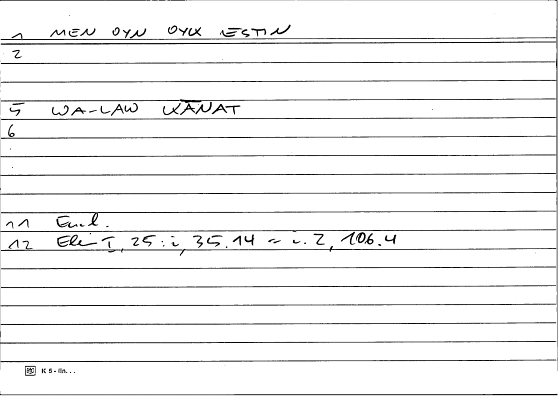 1 MEN OYN OYK ESTIN
2
5 WA-LAW KĀNAT
6
11 Eucl.
12 El. I, 25: i, 35.14 ~ i. 2, 106.4
K 5 - lin. . .